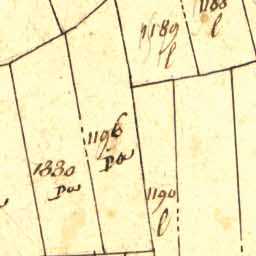 1188
l
1189
l
1196
pa
1330
pa
1190
l